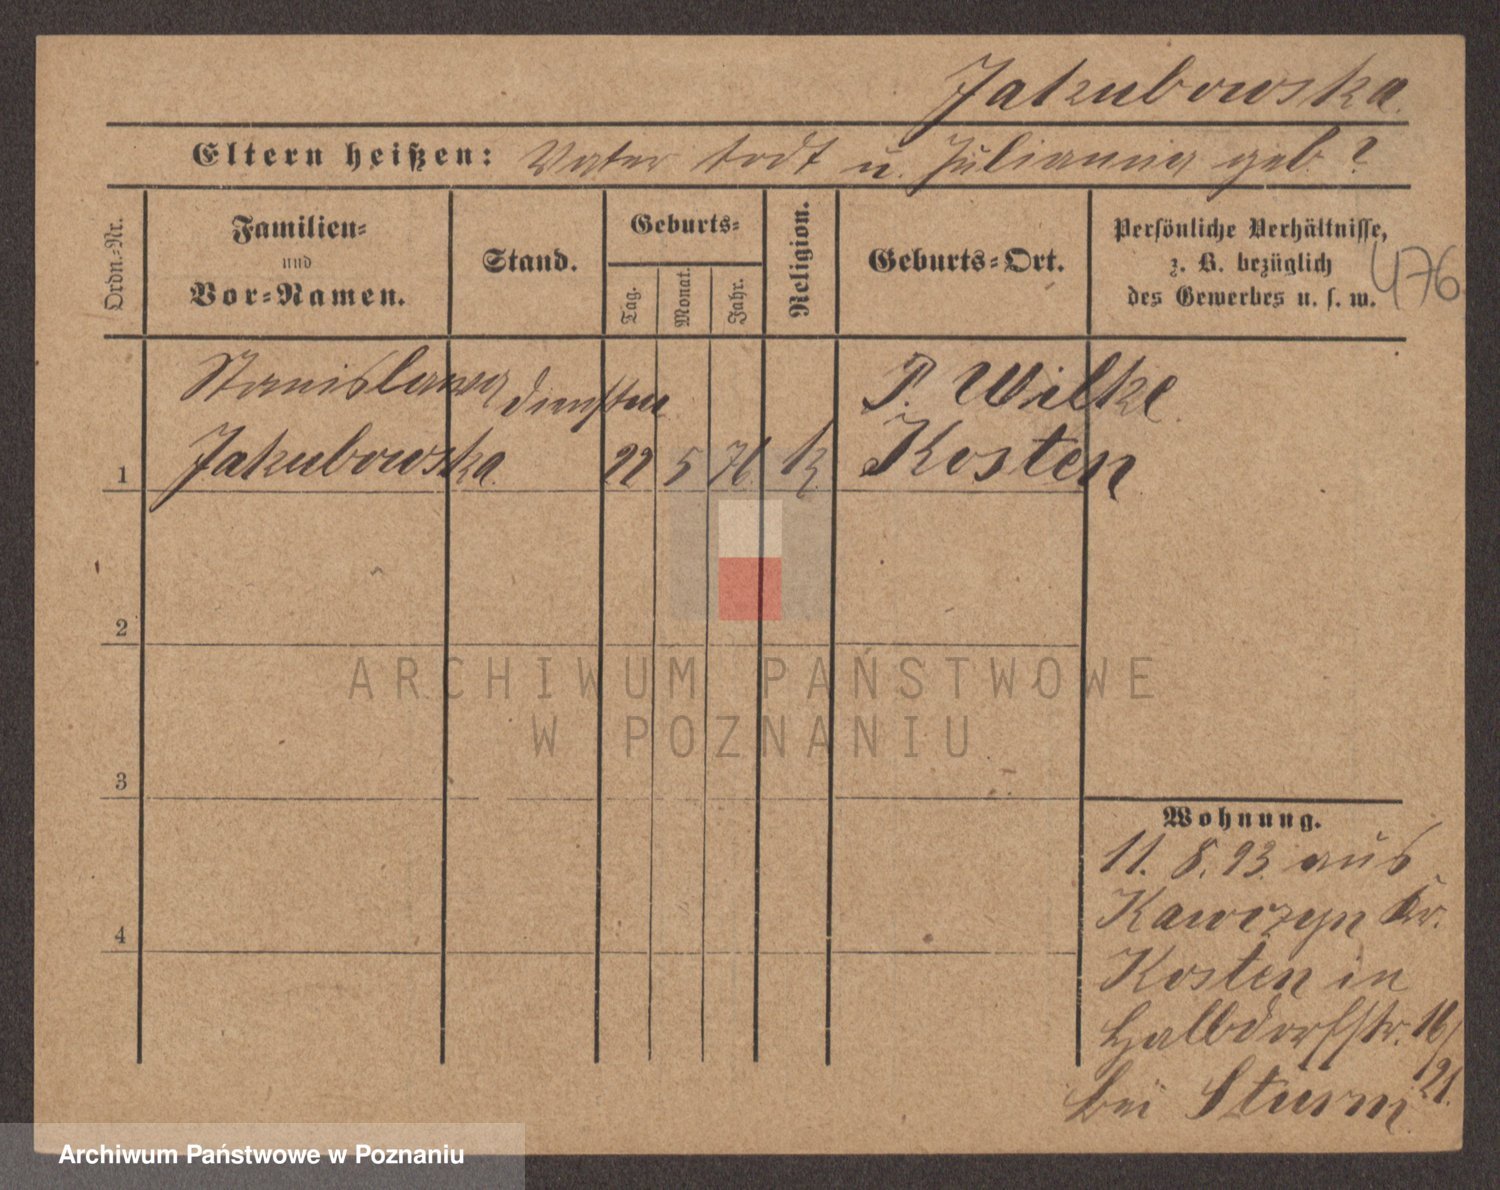 Jakubowska
Eltern heißen: Vater todt u. Julianna geb. ?
Ordn.-Nr.
Familien-
und
Vor-Namen.
Stand.
Geburts-
Tag.
Monat.
Jahr.
Religion.
Geburts-Ort.
Persönliche Verhältnisse,
z. B. bezüglich
des Gewerbes u. s. w.
476
Stanislawa
P. Wilke
1 Jakubowska 22 5 76 k Kosten
2
3
4
Wohnung.
11. 8. 93. aus
Kawczyn Kr.
Kosten in
Halbdorfstr. 16/
21.
bei Sturm
ARCHIWUM PAŃSTWOWE
W POZNANIU
Archiwum Państwowe w Poznaniu